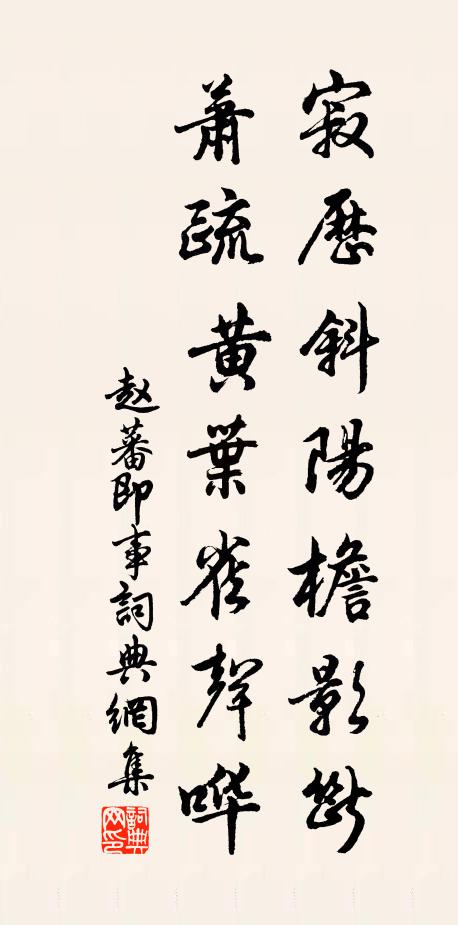 寂歷斜陽檐影斷
蕭疏黃葉雀聲嘩
赵蕃即事詞典網集
詞典网印